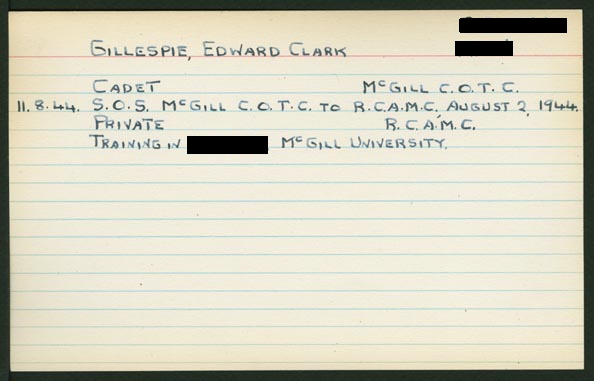 GILLESPIE, EDWARD CLARK
CADET McGILL C.O.T.C.
11.8.44. S.O.S. McGILL C.O.T.C. TO R.C.A.M.C. AUGUST 2, 1944.
PRIVATE R.C.A.M.C.
TRAINING IN McGILL UNIVERSITY.